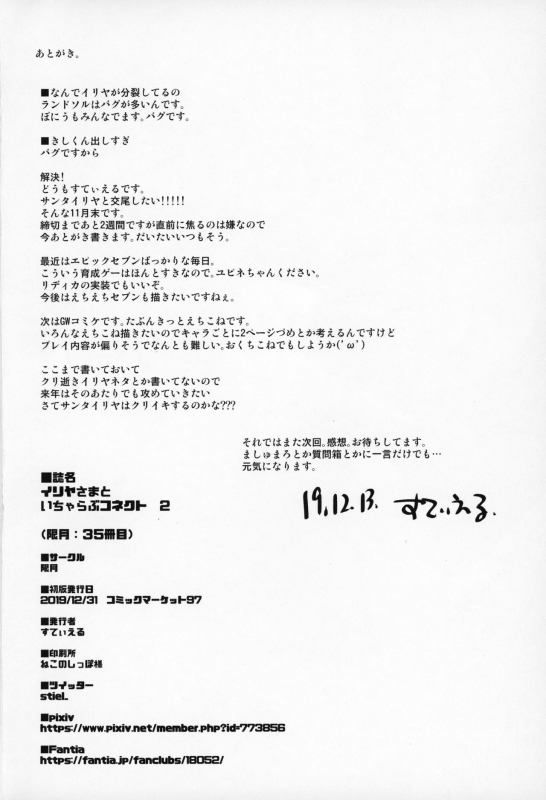 あとがき。
■なんでイリヤが分裂してるの
ランドソルはバグが多いんです。
ぼにうもみんなでます。バグです。
■きしくん出しすぎ
バグですから
解決！
どうもすてぃえるです。
サンタイリヤと交尾したい！！！！！
そんな11月末です。
締切まであと2週間ですが直前に焦るのは嫌なので
今あとがき書きます。だいたいいつもそう。
最近はエピックセブンばっかりな毎日。
こういう育成ゲーはほんとすきなので。ユピネちゃんください。
リディカの実装でもいいぞ。
今後はえちえちセブンも描きたいですねぇ。
次はGWコミケです。たぶんきっとえちこねです。
いろんなえちこね描きたいのでキャラごとに2ページづめとか考えるんですけど
プレイ内容が偏りそうでなんとも難しい。おくちこねでもしようか('ω')
ここまで書いておいて
クリ逝きイリヤネタとか書いてないので
来年はそのあたりでも攻めていきたい
さてサンタイリヤはクリイキするのかな???
それではまた次回。感想。お待ちしてます。
ましゅまろとか質問箱とかに一言だけでも…
元気になります。
19.12.13. すてぃえる
■誌名
イリヤさまと
いちゃらぶコネクト　2
(限月：35冊目)
■サークル
限月
■初版発行日
2019/12/31　コミックマーケット97
■発行者
すてぃえる
■印刷所
ねこのしっぽ様
■ツイッター
stiel_
■pixiv
https://www.pixiv.net/member.php?id=773856
■Fantia
https://fantia.jp/fanclubs/18052/